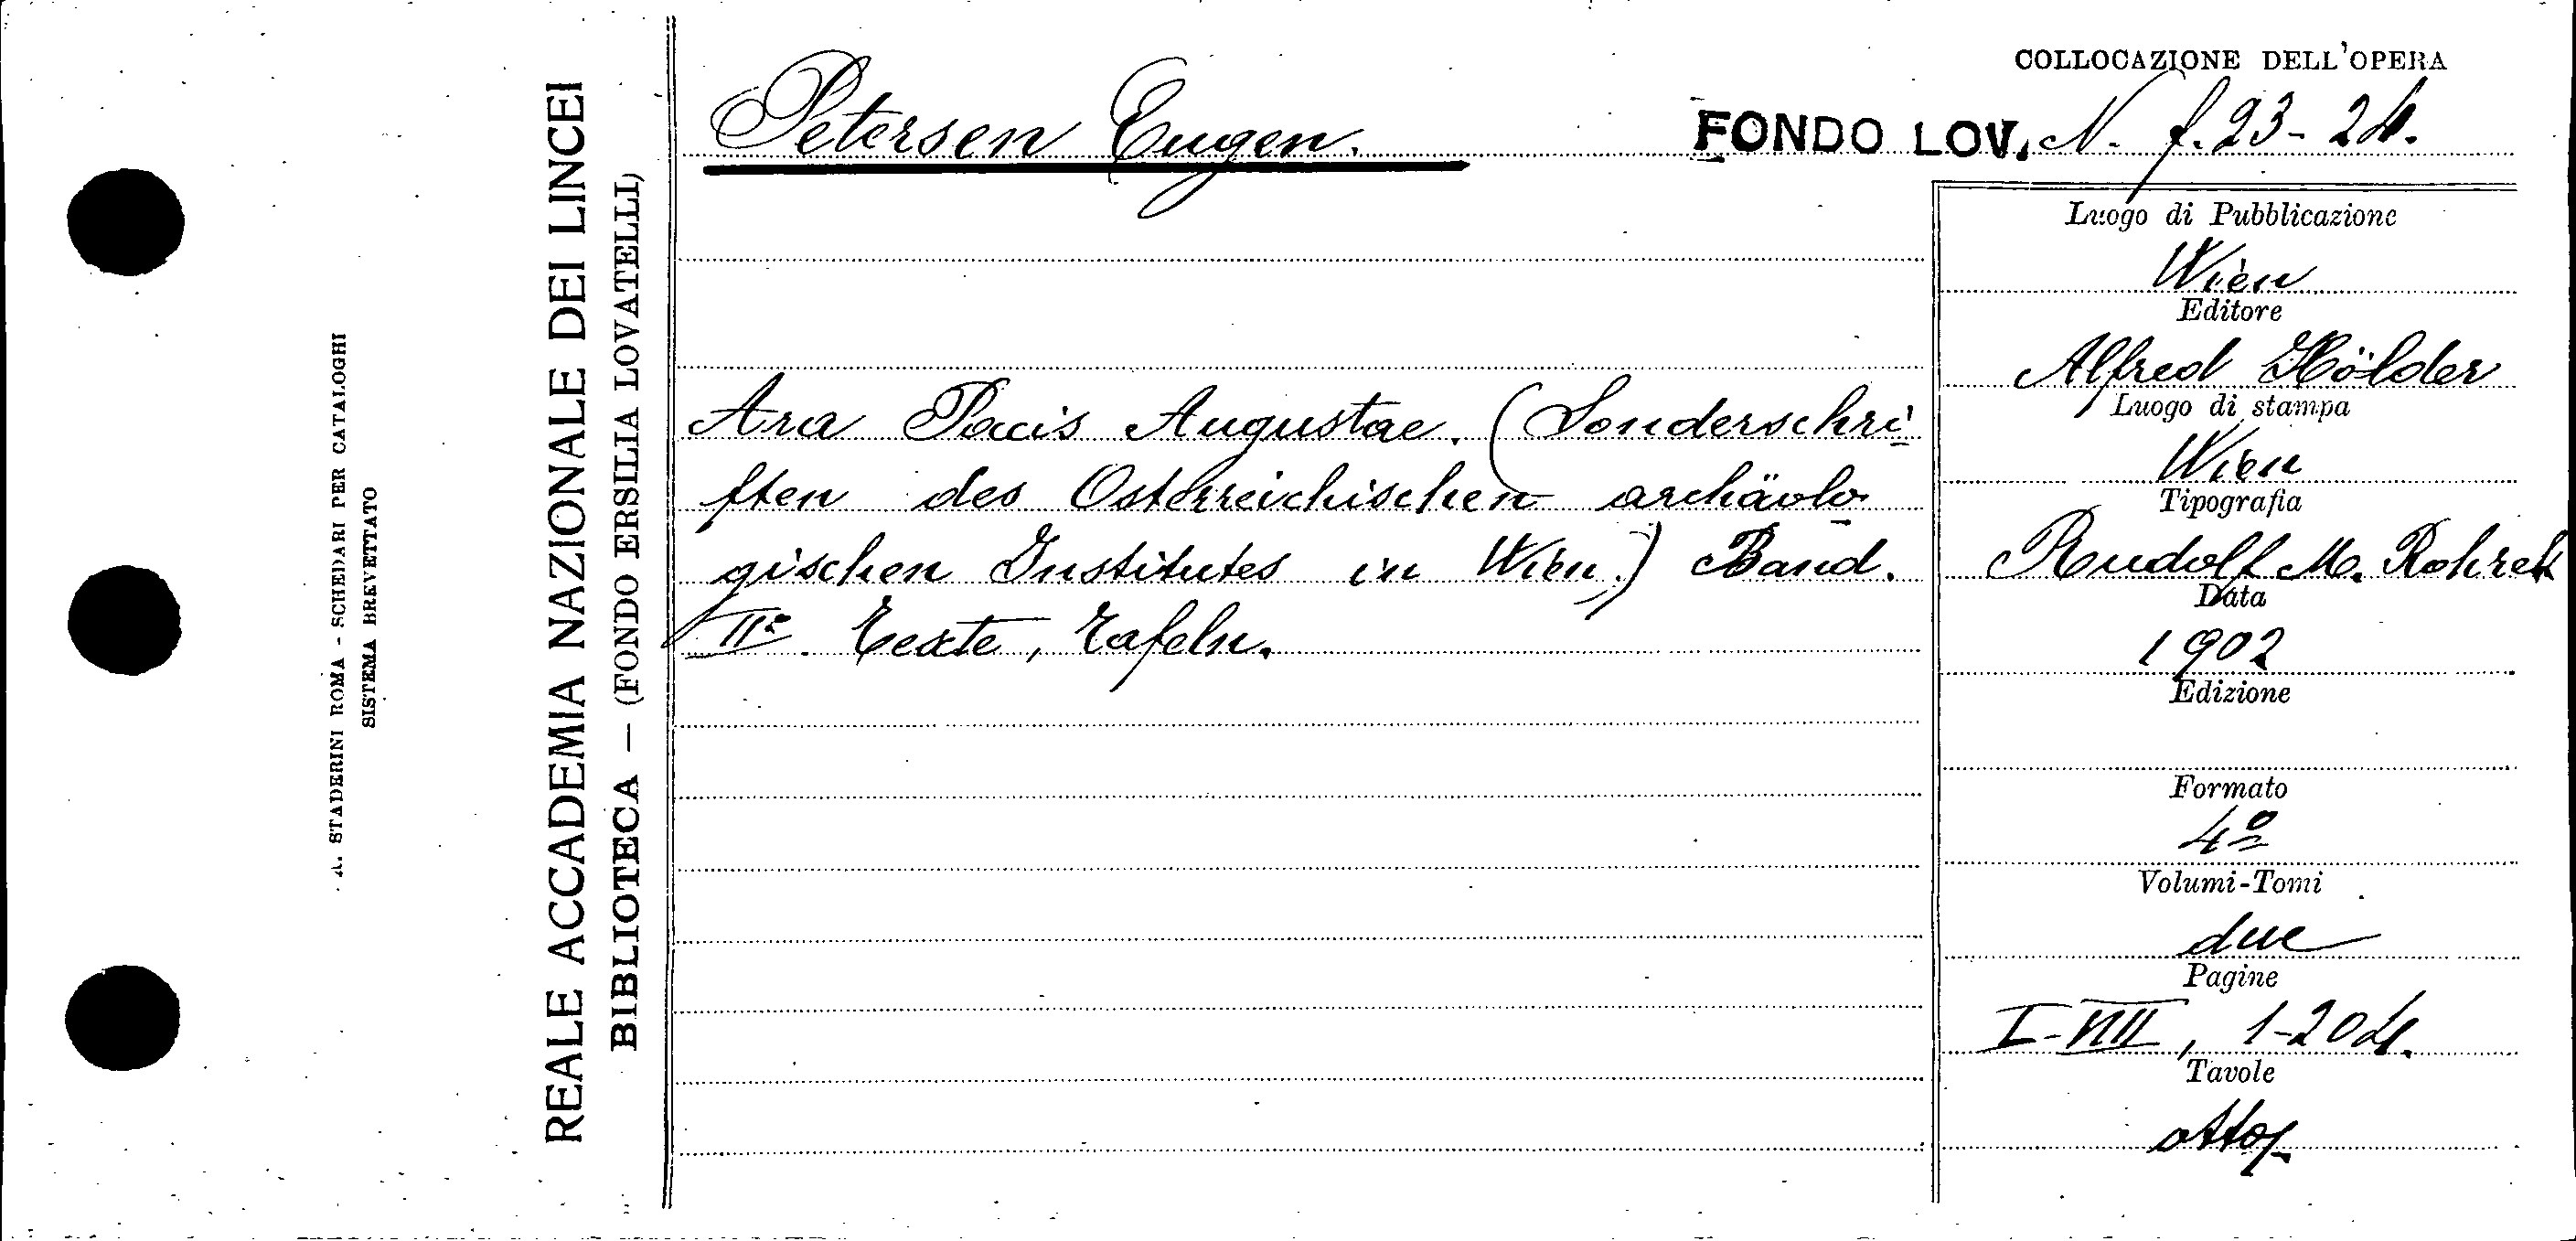 COLLOCAZIONE DELL'OPERA
Petersen Eugen.
FONDO LOV. N. f. 23-24.
Ara Pacis Augustae. (Sonderschri-
ften des Osterreichischen archäolo-
gischen Institutes in Wien.) Band.
IIº. Texte, Tafeln.
Luogo di Pubblicazione
Wien
Editore
Alfred Hölder
Luogo di stampa
Wien
Tipografia
Rudolf M. Rohrer
Data
1902
Edizione
Formato
4º
Volumi-Tomi
due
Pagine
I-VIII, 1-204.
Tavole
otto
REALE ACCADEMIA NAZIONALE DEI LINCEI
BIBLIOTECA — (FONDO ERSILIA LOVATELLI)
A. STADERINI ROMA - SCHEDARI PER CATALOGHI
SISTEMA BREVETTATO